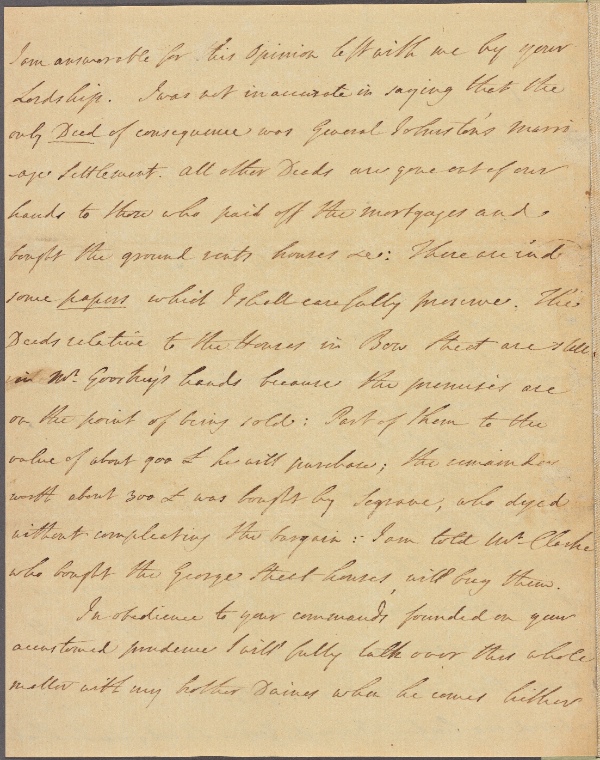 I am answerable for his Opinion left with me by your
Lordship. I was not inaccurate in saying that the
only Deed of consequence was General Johnston's marri
-age Settlement. All other Deeds are gone out of our
hands to those who paid off the mortgages and
bought the ground rents houses &c: There are ind
some papers which I shall carefully preserve. The
Deeds relative to the Houses in Bow Street are still
in Mr. Goostrey's hands because the premises are
on the point of being sold: Part of them to the
value of about 900 £ he will purchase; the remainder
worth about 300 £ was bought by Segrave, who dyed
without compleating the bargain: I am told Mr. Clarke
who bought the George Street houses, will buy them.
In obedience to your commands founded on your
accustomed prudence I will fully talk over this whole
matter with my brother Daines when he comes hither